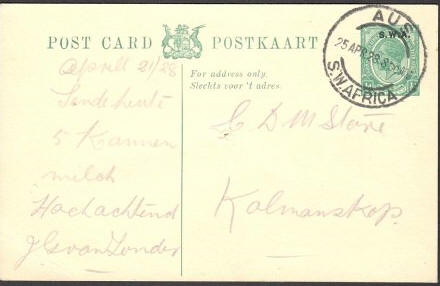 POST CARD POSTKAART
For address only.
Slechts voor 't adres.
S.W.A.
AUS
25 APR 28
S.W.AFRICA
Aprill 21/28
Sende heute
5 Kannen
milch
Hochachtend
JG van Zonder
C D M Store
Kolmanskop.